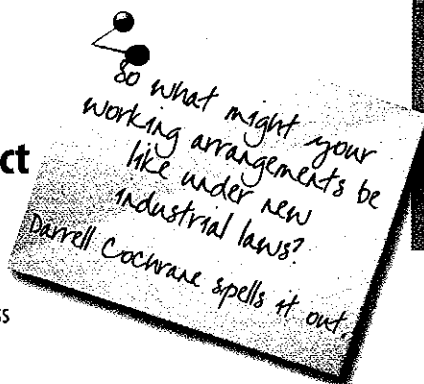 So what might your
working arrangements be
like under new
industrial laws?
Darrell Cochrane spells it out.
ct
ss